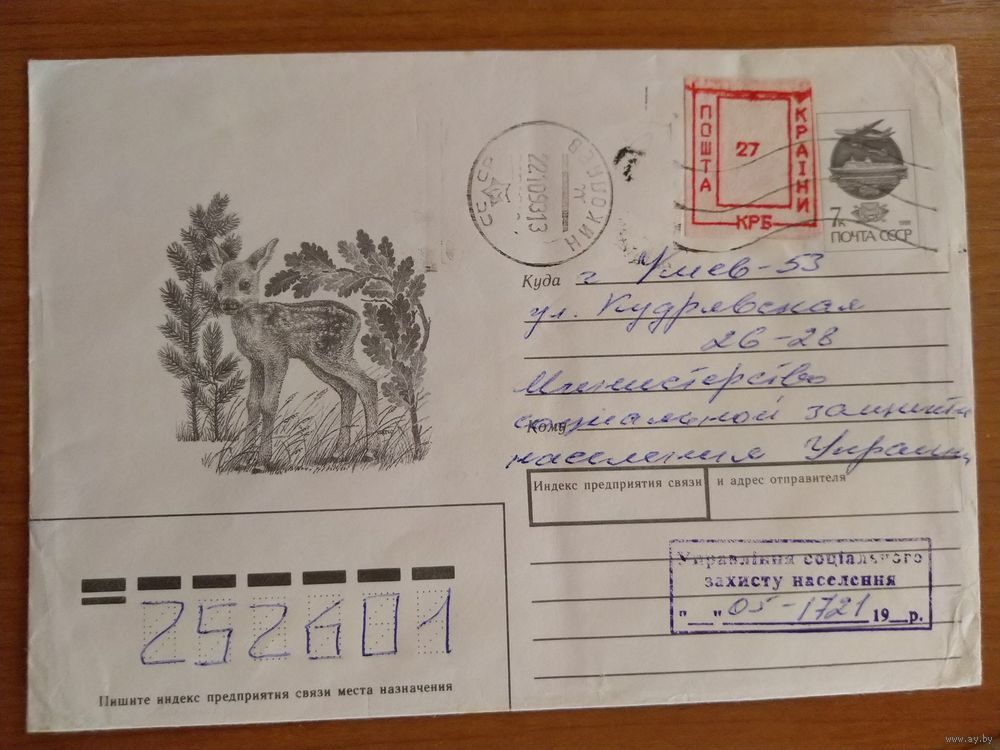 СССР
221093 13
НИКОЛАЕВ
ПОШТА
УКРАЇНИ
27
КРБ
7к
ПОЧТА СССР
Куда г Киев-53
ул. Кудрявская
26-28
Министерство
Кому социальной защиты
населения Украины
Индекс предприятия связи и адрес отправителя
Управління соціального
захисту населення
"__" 05-1721 19__р.
252601
Пишите индекс предприятия связи места назначения
www.ay.by